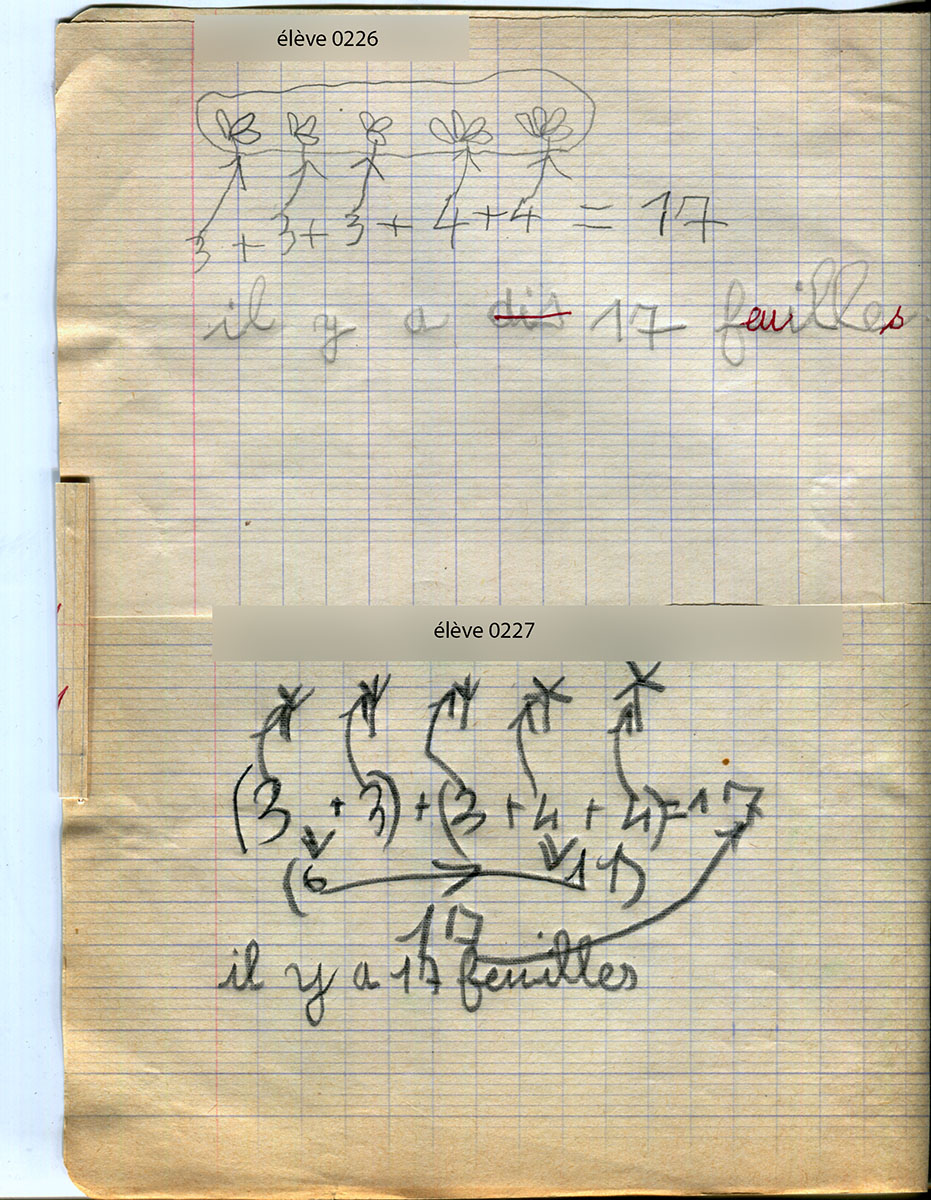 élève 0226
3 + 3 + 3 + 4 + 4 = 17
il y a dis 17 feuilles
élève 0227
(3 + 3) + (3 + 4 + 4) = 17
(6 11)
17
il y a 17 feuilles